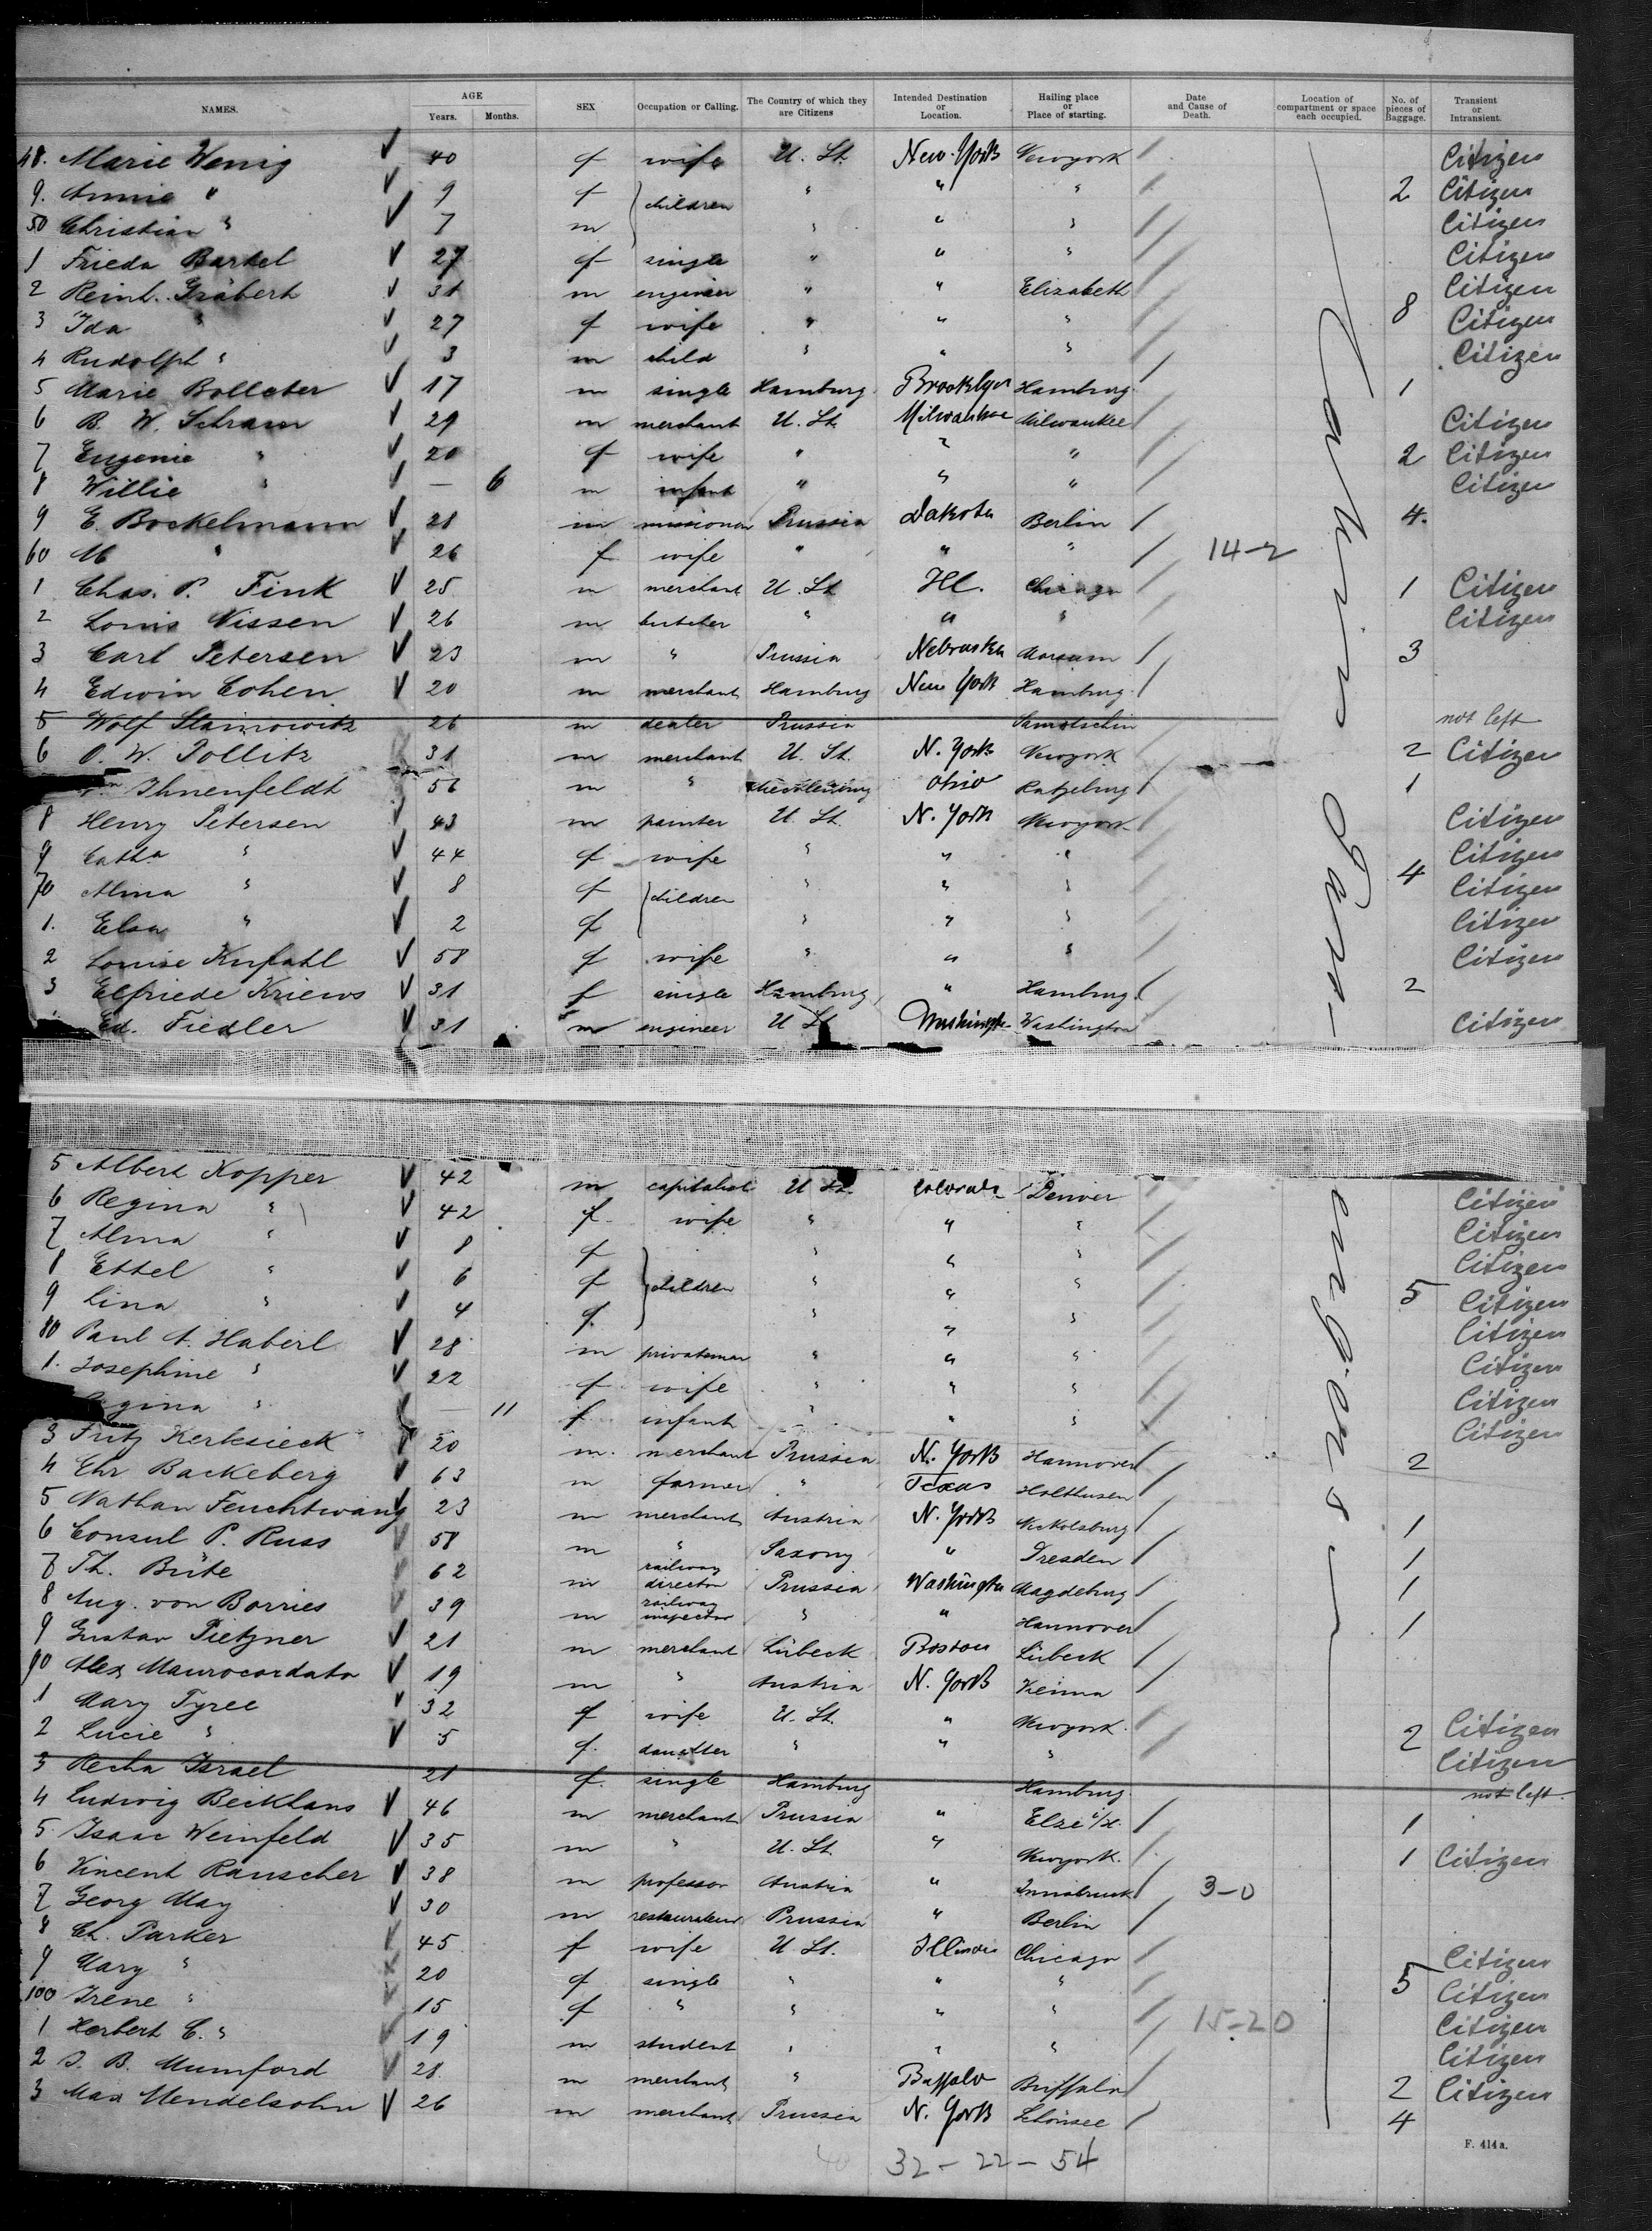 NAMES. AGE Years. Months. SEX Occupation or Calling. The Country of which they are Citizens Intended Destination or Location. Hailing place or Place of starting. Date and Cause of Death. Location of compartment or space each occupied. No. of pieces of Baggage. Transient or Intransient.
48. Marie Wenig 40 f wife U. St. New-York Newyork Citizen
9. Annie " 9 f children " " " 2 Citizen
50 Christian " 7 m " " " Citizen
1 Frieda Bartel 27 f single " " " Citizen
2 Reinh. Gräbert 31 m engineer " " Elizabeth Citizen
3 Ida " 27 f wife " " " 8 Citizen
4 Rudolph " 3 m child " " " Citizen
5 Marie Bolleter 17 m single Hamburg Brooklyn Hamburg 1
6 B. W. Schram 29 m merchant U. St. Milwaukee Milwaukee Citizen
7 Eugenie " 20 f wife " " " 2 Citizen
8 Willie " — 6 m infant " " " Citizen
9 E. Bockelmann 28 m missionar Prussia Dakota Berlin 4.
60 M " 26 f wife " " " 14-2
1 Chas. P. Fink 25 m merchant U. St. Ill. Chicago 1 Citizen
2 Louis Nissen 26 m butcher " " " Citizen
3 Carl Petersen 23 m " Prussia Nebraska Morsum 3
4 Edwin Cohen 20 m merchant Hamburg New York Hamburg
5 Wolf 26 m dealer Prussia Samotschin not left
6 O. W. Pollitz 31 m merchant U. St. N. York Newyork 2 Citizen
Ihnenfeldt 56 m " Ohio Ratzeburg 1
8 Henry Petersen 43 m painter U. St. N. York Newyork Citizen
9 Catha " 44 f wife " " " Citizen
70 Alma " 8 f children " " " 4 Citizen
1. Elsa " 2 f " " " Citizen
2 Louise Kufahl 58 f wife " " " Citizen
3 Elfriede Kriews 31 f single Hamburg " Hamburg 2
Ed. Fiedler 31 m engineer U St Washington Washington Citizen
5 Albert Kopper 42 m capitalist U St. Colorado Denver Citizen
6 Regina " 42 f. wife " " " Citizen
7 Alma " 8 f " " " Citizen
8 Ethel " 6 f children " " " 5 Citizen
9 Lina " 4 f. " " " Citizen
80 Paul A. Haberl 28 m privateman " " " Citizen
1. Josephine " 22 f wife " " " Citizen
gina " — 11 f infant " " " Citizen
3 Fritz Kerksieck 20 m. merchant Prussia N. York Hannover 2
4 Chr Backeberg 63 m farmer " Texas Holthusen
5 Nathan Feuchtwang 23 m merchant Austria N. York Nickolsburg 1
6 Consul P. Russ 58 m " Saxony " Dresden 1
7 Th. Büte 62 m railway director Prussia Washington Magdeburg 1
8 Aug. von Borries 39 m railway inspector " " Hannover 1
9 Gustav Pietzner 21 m merchant Lübeck Boston Lübeck
90 Alex Maurocordato 19 m " Austria N. York
1 Mary Tyree 32 f wife U. St. " Newyork.
2 Lucie " 5 f. daughter " " " 2 Citizen
3 Recha Israel 21 f. single Hamburg Hamburg Citizen
not left.
4 Ludwig Beckhans 46 m merchant Prussia " Elze i/H. 1
5. Isaac Weinfeld 35 m " U. St. " Newyork. 1 Citizen
6 Vincent Rauscher 38 m professor Austria " Innsbruck 3-0
7 Georg May 30 m restaurateur Prussia " Berlin
8 Ch. Parker 45 f wife U. St. Illinois Chicago Citizen
9 Mary " 20 f single " " " 5 Citizen
100 Irene " 15 f " " " " 15-20 Citizen
1 Herbert C. " 19 m student " " " Citizen
2 J. B. Mumford 28 m merchant " Buffalo Buffalo 2 Citizen
3 Max Mendelsohn 26 m merchant Prussia N. York Schönsee 4
Cabin Passengers
F. 414a.
32 - 22 - 54